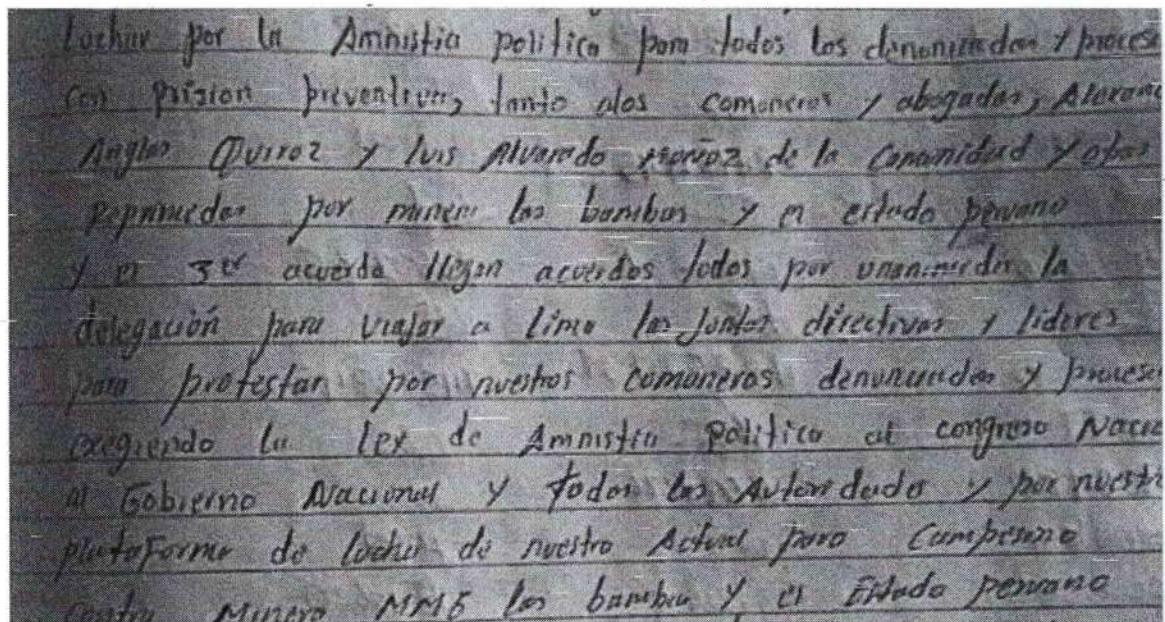 Lochar por la Amnistia politica para todos los denunciados y procesa
con prision preventiva, tanto alos comoneros y abogados,
Anglas Quiroz y luis Alvarado de la Comunidad y otros
por minera las bambas y el estado peruano
y el 3er acuerdo llegan acuerdos todos por la
delegación para viajar a lima las juntas directivas y lideres
para protestar por nuestros comuneros denunciados y procesa
exegiendo la ley de Amnistia politica al congreso Nacio
al Gobierno Nacional y todas las Autoridades y por nuestr
plataforma de lucha de nuestro Actual paro Campesino
contra Minera MMG las bambas y el Estado peruano